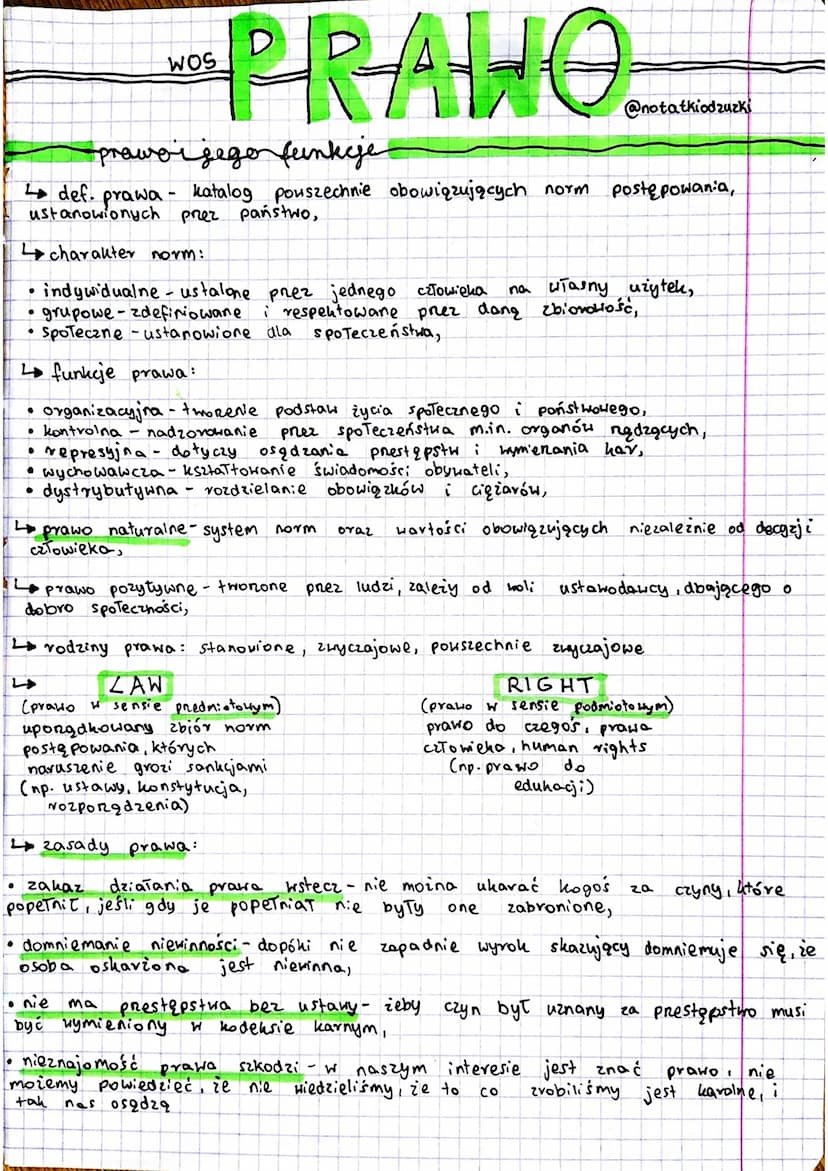 WOS PRAWO
@notatkiodzuzki
prawo i jego funkcje
↳ def. prawa - katalog powszechnie obowiązujących norm postępowania,
ustanowionych przez państwo,
↳ charakter norm:
• indywidualne - ustalone przez jednego człowieka na własny użytek,
• grupowe - zdefiniowane i respektowane przez daną zbiorowość,
• społeczne - ustanowione dla społeczeństwa,
↳ funkcje prawa:
• organizacyjna - tworzenie podstaw życia społecznego i państwowego,
• kontrolna - nadzorowanie przez społeczeństwa m.in. organów rządzących,
• represyjna - dotyczy osądzania przestępstw i wymierzania kar,
• wychowawcza - kształtowanie świadomości obywateli,
• dystrybutywna - rozdzielanie obowiązków i ciężarów,
↳ prawo naturalne - system norm oraz wartości obowiązujących niezależnie od decyzji
człowieka,
↳ prawo pozytywne - tworzone przez ludzi, zależy od woli ustawodawcy, dbającego o
dobro społeczności,
↳ rodziny prawa: stanowione, zwyczajowe, powszechnie zwyczajowe
↳ LAW RIGHT
(prawo w sensie przedmiotowym) (prawo w sensie podmiotowym)
uporządkowany zbiór norm prawo do czegoś, prawa
postępowania, których człowieka, human rights
naruszenie grozi sankcjami (np. prawo do
(np. ustawy, konstytucja, edukacji)
rozporządzenia)
↳ zasady prawa:
• zakaz działania prawa wstecz - nie można ukarać kogoś za czyny, które
popełnił, jeśli gdy je popełniał nie były one zabronione,
• domniemanie niewinności - dopóki nie zapadnie wyrok skazujący domniemuje się, że
osoba oskarżona jest niewinna,
• nie ma przestępstwa bez ustawy - żeby czyn był uznany za przestępstwo musi
być wymieniony w kodeksie karnym,
• nieznajomość prawa szkodzi - w naszym interesie jest znać prawo, nie
możemy powiedzieć, że nie wiedzieliśmy, że to co zrobiliśmy jest karalne, i
tak nas osądzą